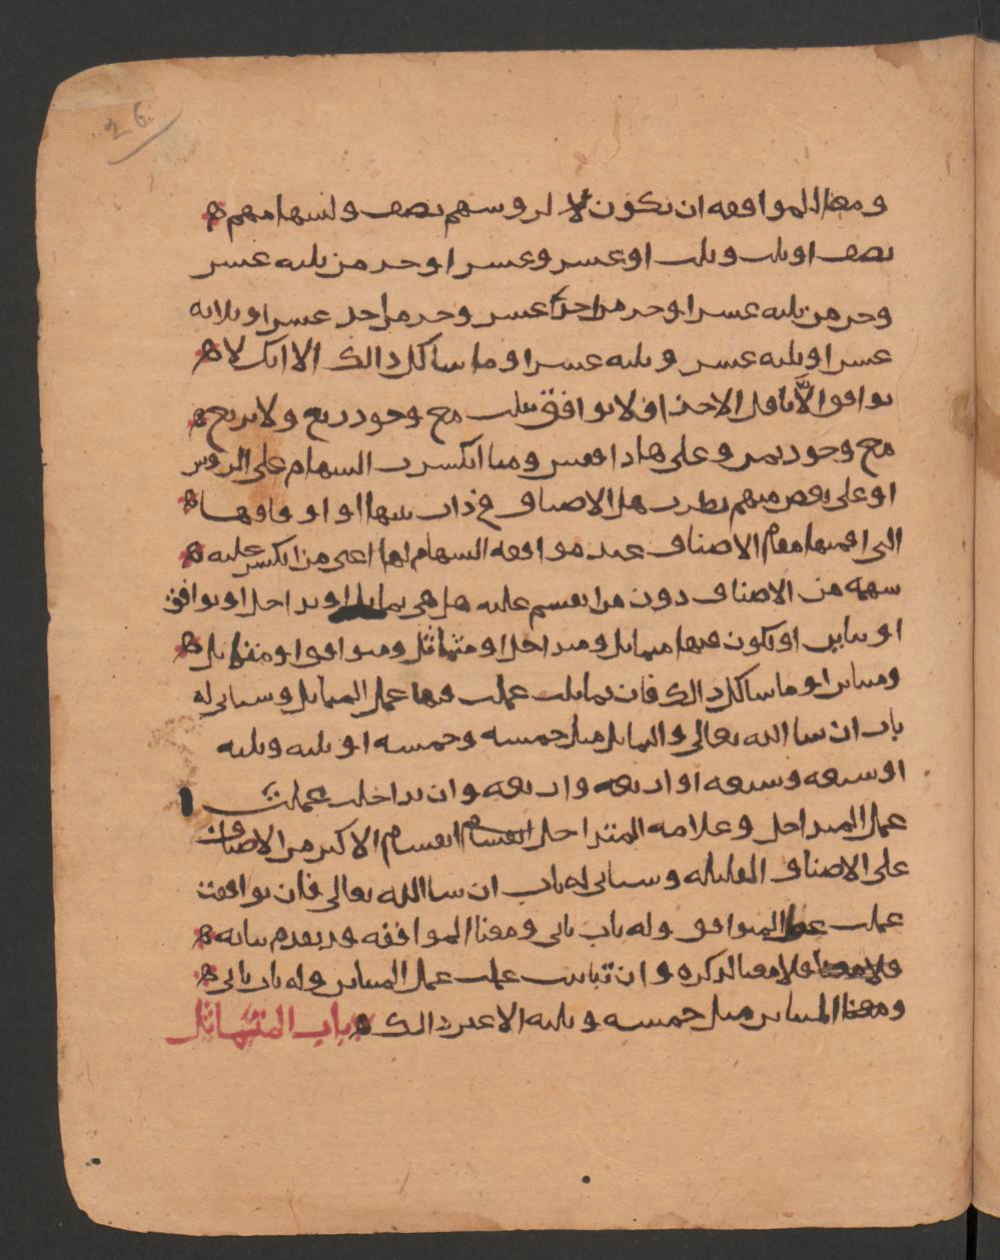 26
ومعنا الموافقه ان يكون لا لروسهم نصف ولسهامهم
نصف او ثلث وثلث او عشر وعشر او جز من ثلثه عشر
وجز من ثلثه عشر او جز من احد عشر وجز من احد عشر او ثلاثه
عشر او ثلثه عشر وثلثه عشر او ما شاكل ذالك الا انك لا
توافق الا باقل الاجزا فلا توافق بثلث مع وجود ربع ولا بربع
مع وجود ثمن وعلى هاذا فقس ومتا انكسرت السهام على الروس
او على بعض منهم نظرت هل الاصناف في ذات بينها او اوفاقها
التي اقمتها مقام الاصناف عند موافقه السهام لها اعني من انكسر عليه
سهمه من الاصناف دون من انقسم عليه هل هي تماثل او تداخل او توافق
او تباين او يكون فيها متماثل ومتداخل او متماثل ومتوافق او متماثل
ومتباين او ما شاكل ذالك فان تماثلت عملت فيها عمل المتماثل وسياتي له
باب ان شا الله تعالى والتماثل مثل خمسه وخمسه او ثلثه وثلثه
او سبعه وسبعه او اربعه واربعه وان تداخلت عملت
عمل المتداخل وعلامه المتداخل انقسام الاكبر من الاصناف
على الاصناف القليله وسياتي له باب ان شا الله تعالى فان توافقت
عملت عمل المتوافق وله باب ياتي ومعنا الموافقه قد تقدم بيانه
فلا معنا لذكره وان تباينت عملت عمل المتباين وله باب ياتي
ومعنا المتباين مثل خمسه وثلثه الا غير ذالك باب المتماثل